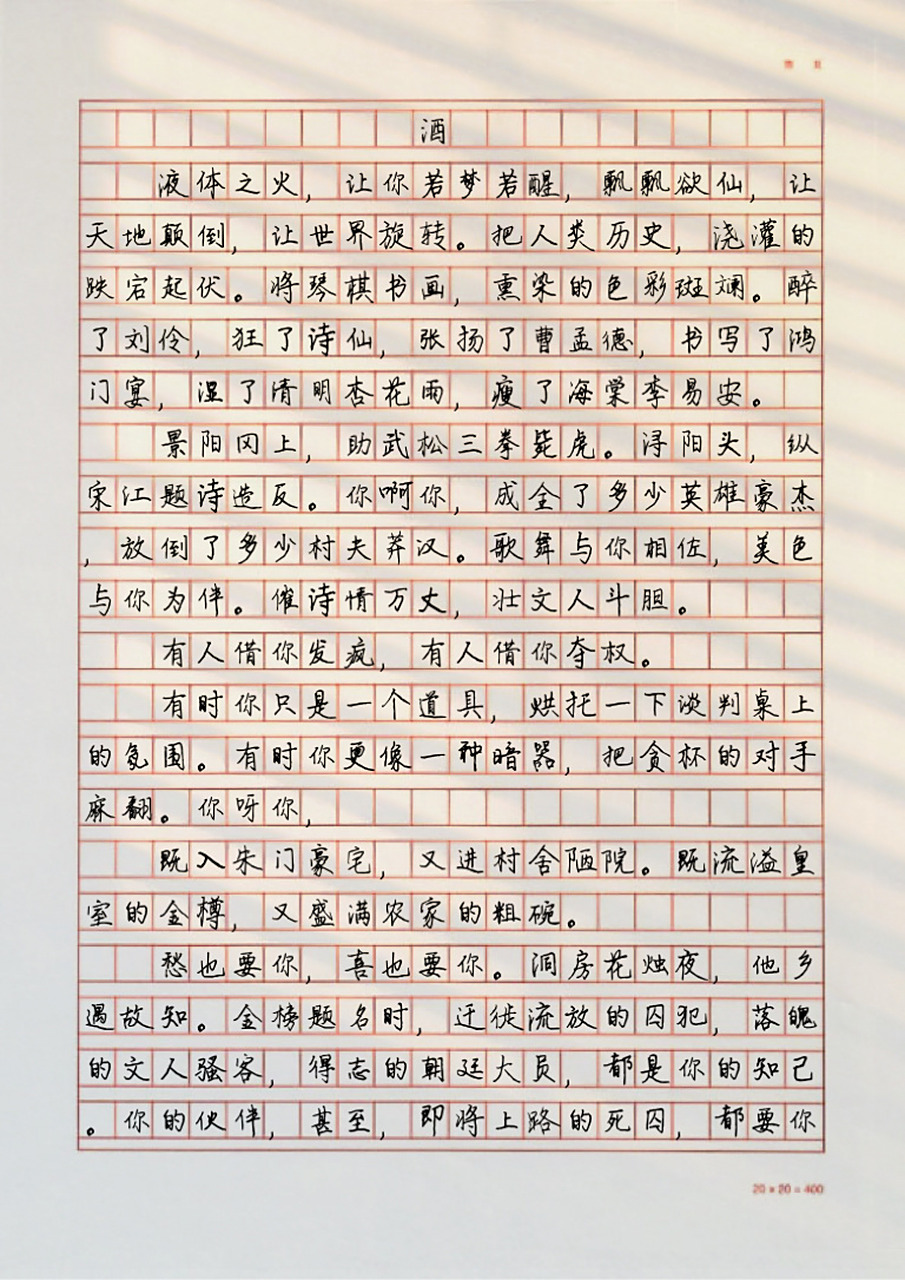 酒
液体之火，让你若梦若醒，飘飘欲仙，让
天地颠倒，让世界旋转。把人类历史，浇灌的
跌宕起伏。将琴棋书画，熏染的色彩斑斓。醉
了刘伶，狂了诗仙，张扬了曹孟德，书写了鸿
门宴，湿了清明杏花雨，瘦了海棠李易安。
景阳冈上，助武松三拳毙虎。浔阳头，纵
宋江题诗造反。你啊你，成全了多少英雄豪杰
，放倒了多少村夫莽汉。歌舞与你相佐，美色
与你为伴。催诗情万丈，壮文人斗胆。
有人借你发疯，有人借你夺权。
有时你只是一个道具，烘托一下谈判桌上
的氛围。有时你更像一种暗器，把贪杯的对手
麻翻。你呀你，
既入朱门豪宅，又进村舍陋院。既流溢皇
室的金樽，又盛满农家的粗碗。
愁也要你，喜也要你。洞房花烛夜，他乡
遇故知。金榜题名时，迁徙流放的囚犯，落魄
的文人骚客，得志的朝廷大员，都是你的知己
。你的伙伴，甚至，即将上路的死囚，都要你
20×20=400